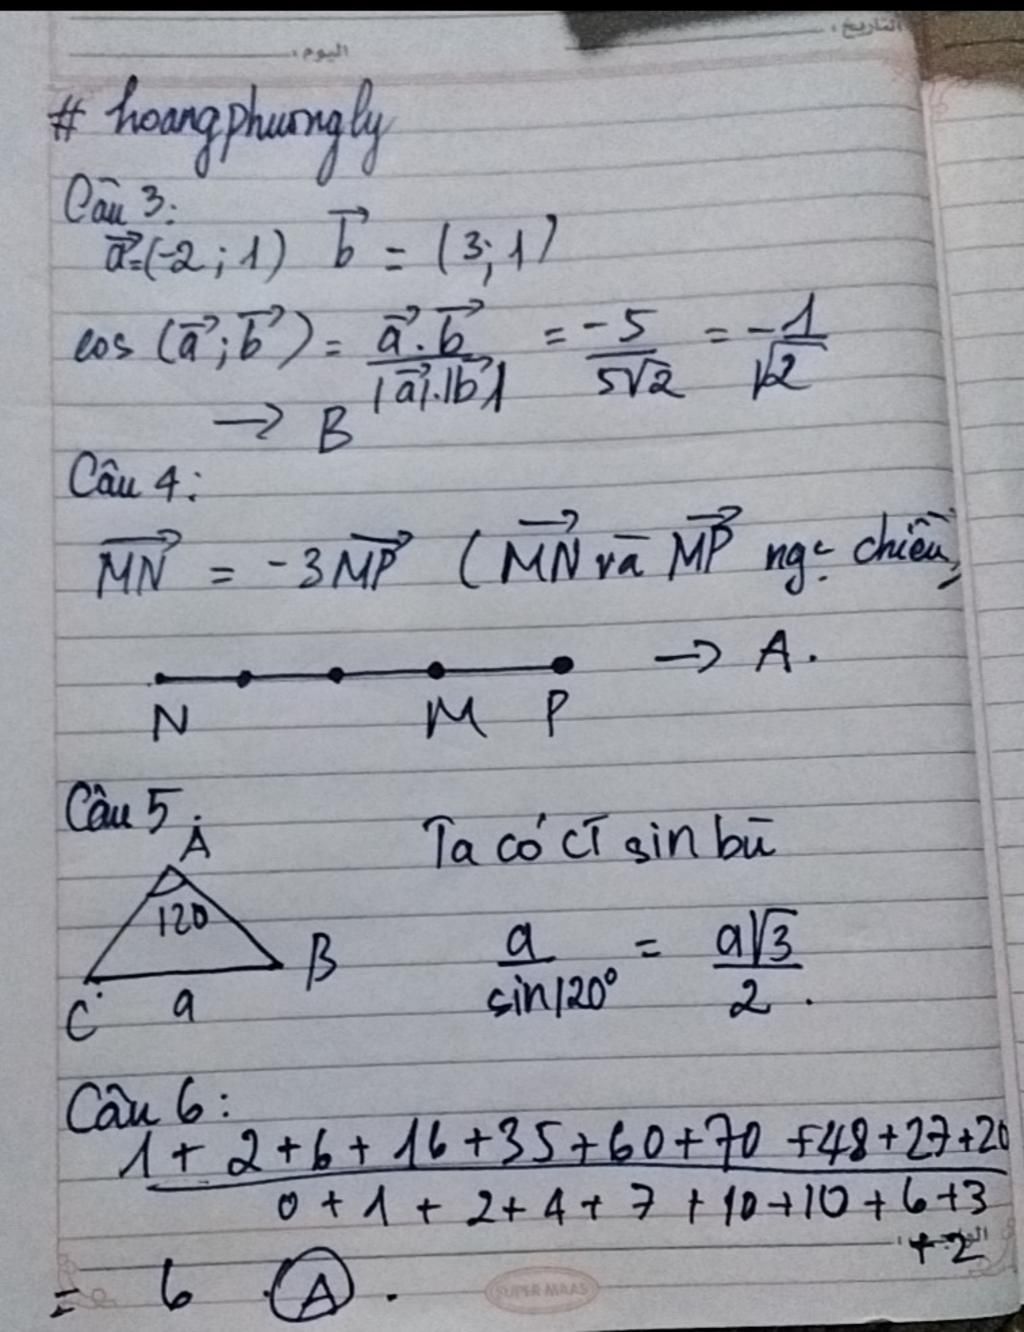 التاريخ:
اليوم:
# hoangphuongly
Câu 3:
a⃗=(-2;1) b⃗ = (3;1)
cos (a⃗;b⃗) = a⃗.b⃗ / |a⃗|.|b⃗| = -5 / 5√2 = -1/√2
→ B
Câu 4:
MN⃗ = -3MP⃗ (MN⃗ và MP⃗ ngc chiều)
→ A.
N M P
Câu 5:
A
Ta có CT sin bù
120
B
a / sin120° = a√3 / 2.
C a
Câu 6:
1 + 2 + 6 + 16 + 35 + 60 + 70 + 48 + 27 + 20
0 + 1 + 2 + 4 + 7 + 10 + 10 + 6 + 3
+ 2
= 6 A.
SUPER MAAS